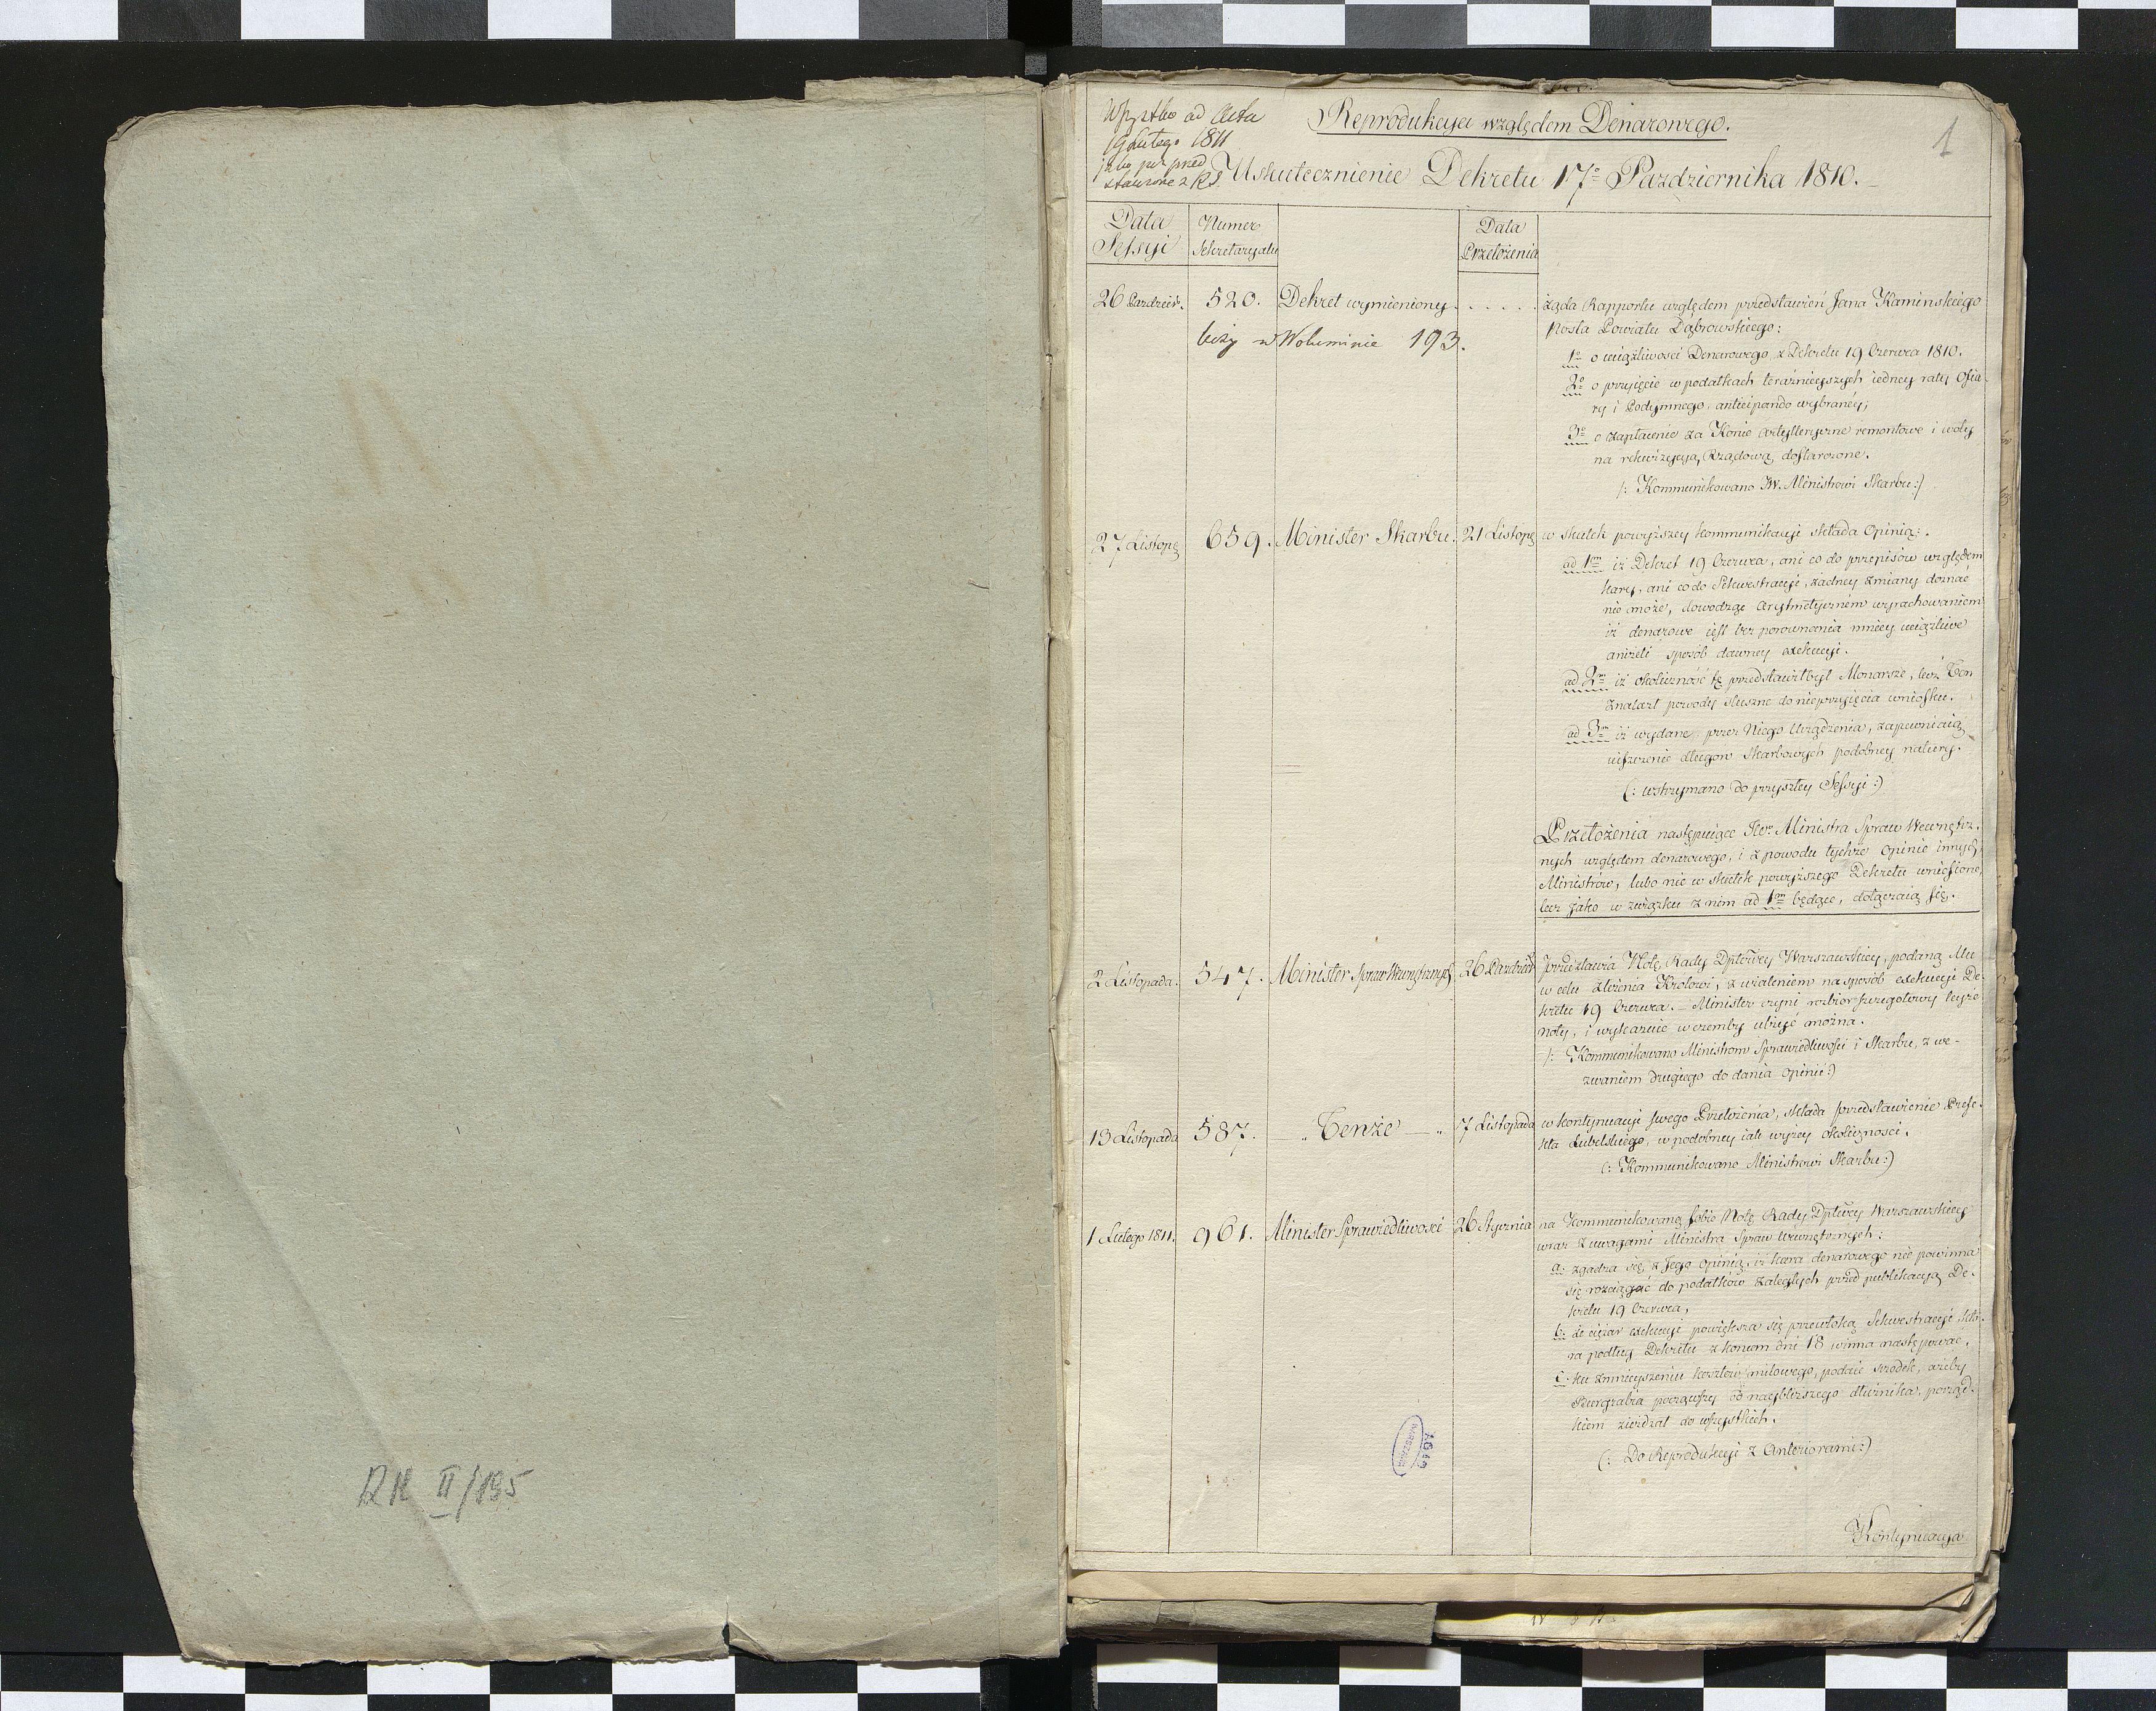 Wszystko ad Acta
19 Lutego 1811
jako już przed
stawione z R.S.
Reprodukcya względem Denarowego.
1
Uskutecznienie Dekretu 17º Pazdziernika 1810.
Data Sessyi
Numer Sekretaryatu
Data Przełożenia
26 Pazdziern. 520. Dekret wymieniony . . . . . . żąda Rapportu względem przedstawień Jana Kaminskiego
leży w Woluminie 193.
Posła Powiatu Dąbrowskiego:
1º o uciążliwości Denarowego z Dekretu 19 Czerwca 1810.
2º o przyięcie w podatkach teraźnieyszych iedney raty Ofia-
ry i Podymnego, anticipando wybraney;
3º o zapłacenie za Konie Artylleryczne remontowe i woły
na rekwizycyą Rządową dostarczone.
/: Kommunikowano JW. Ministrowi Skarbu :/
27 Listopa 659. Minister Skarbu. 21 Listopa w skutek powyższey kommunikacyi składa Opinią:
ad 1m iż Dekret 19 Czerwca, ani co do przepisów względem
kary, ani co do Sekwestracyi, żadney zmiany doznać
nie może, dowodząc Arytmetycznem wyrachowaniem
iż denarowe iest bez porownania mniey uciążliwe
aniżeli sposób dawney exekucyi.
ad 2m iż okoliczność tę przedstawił był Monarsze, lecz Ten
znalazł powody słuszne do nieprzyięcia wniosku.
ad 3m iż wydane przez Niego Urządzenia, zapewniaią
uiszczenie długow Skarbowych podobney natury.
(: wstrzymano do przyszłey Sessyi :)
Przełożenia następuiące JW. Ministra Spraw Wewnętrz-
nych względem denarowego, i z powodu tychże Opinie innych
Ministrów, lubo nie w skutek powyższego Dekretu wniesione,
lecz jako w związku z nim ad 1m będące, dołączaią się.
2 Listopada. 547. Minister Spraw Wewnętrznych 26 Pazdzier przedstawia Notę Rady Dptowey Warszawskiey, podaną Mu
w celu złożenia Krolowi, z użaleniem na sposób exekucyi De-
kretu 19 Czerwca. – Minister czyni rozbiór szczegołowy teyże
Noty, i wykazuie w czemby ulżyć można.
/: Kommunikowano Ministrom Sprawiedliwości i Skarbu, z we-
zwaniem drugiego do dania Opinii :)
13 Listopada 587. – „ Tenże – „ 7 Listopada w kontynuacyi swego Przełożenia, składa przedstawienie Prefe-
kta Lubelskiego, w podobney iak wyżey okoliczności.
(: Kommunikowano Ministrowi Skarbu :)
1 Lutego 1811. 961. Minister Sprawiedliwości 26 Stycznia na Kommunikowaną sobie Notę Rady Dptwey Warszawskiey
wraz z uwagami Ministra Spraw Wewnętrznych:
a. zgadza się z Jego Opinią, iż kara denarowego nie powinna
się rozciągać do podatków zaległych przed publikacyą De-
kretu 19 Czerwca,
b. że ciężar exekucyi powiększa się przewłoką Sekwestracyi któ-
ra podług Dekretu z końcem dni 18 winna następować,
c. ku zmnieyszeniu kosztów milowego, podaie srodek, ażeby
Burgrabia począwszy od nayblższego dłużnika, porząd-
kiem zieżdżał do wszystkich.
(: Do Reprodukcyi z Anterioramí :)
Kontynuacya
AGAD
WARSZAWA
RM II/195